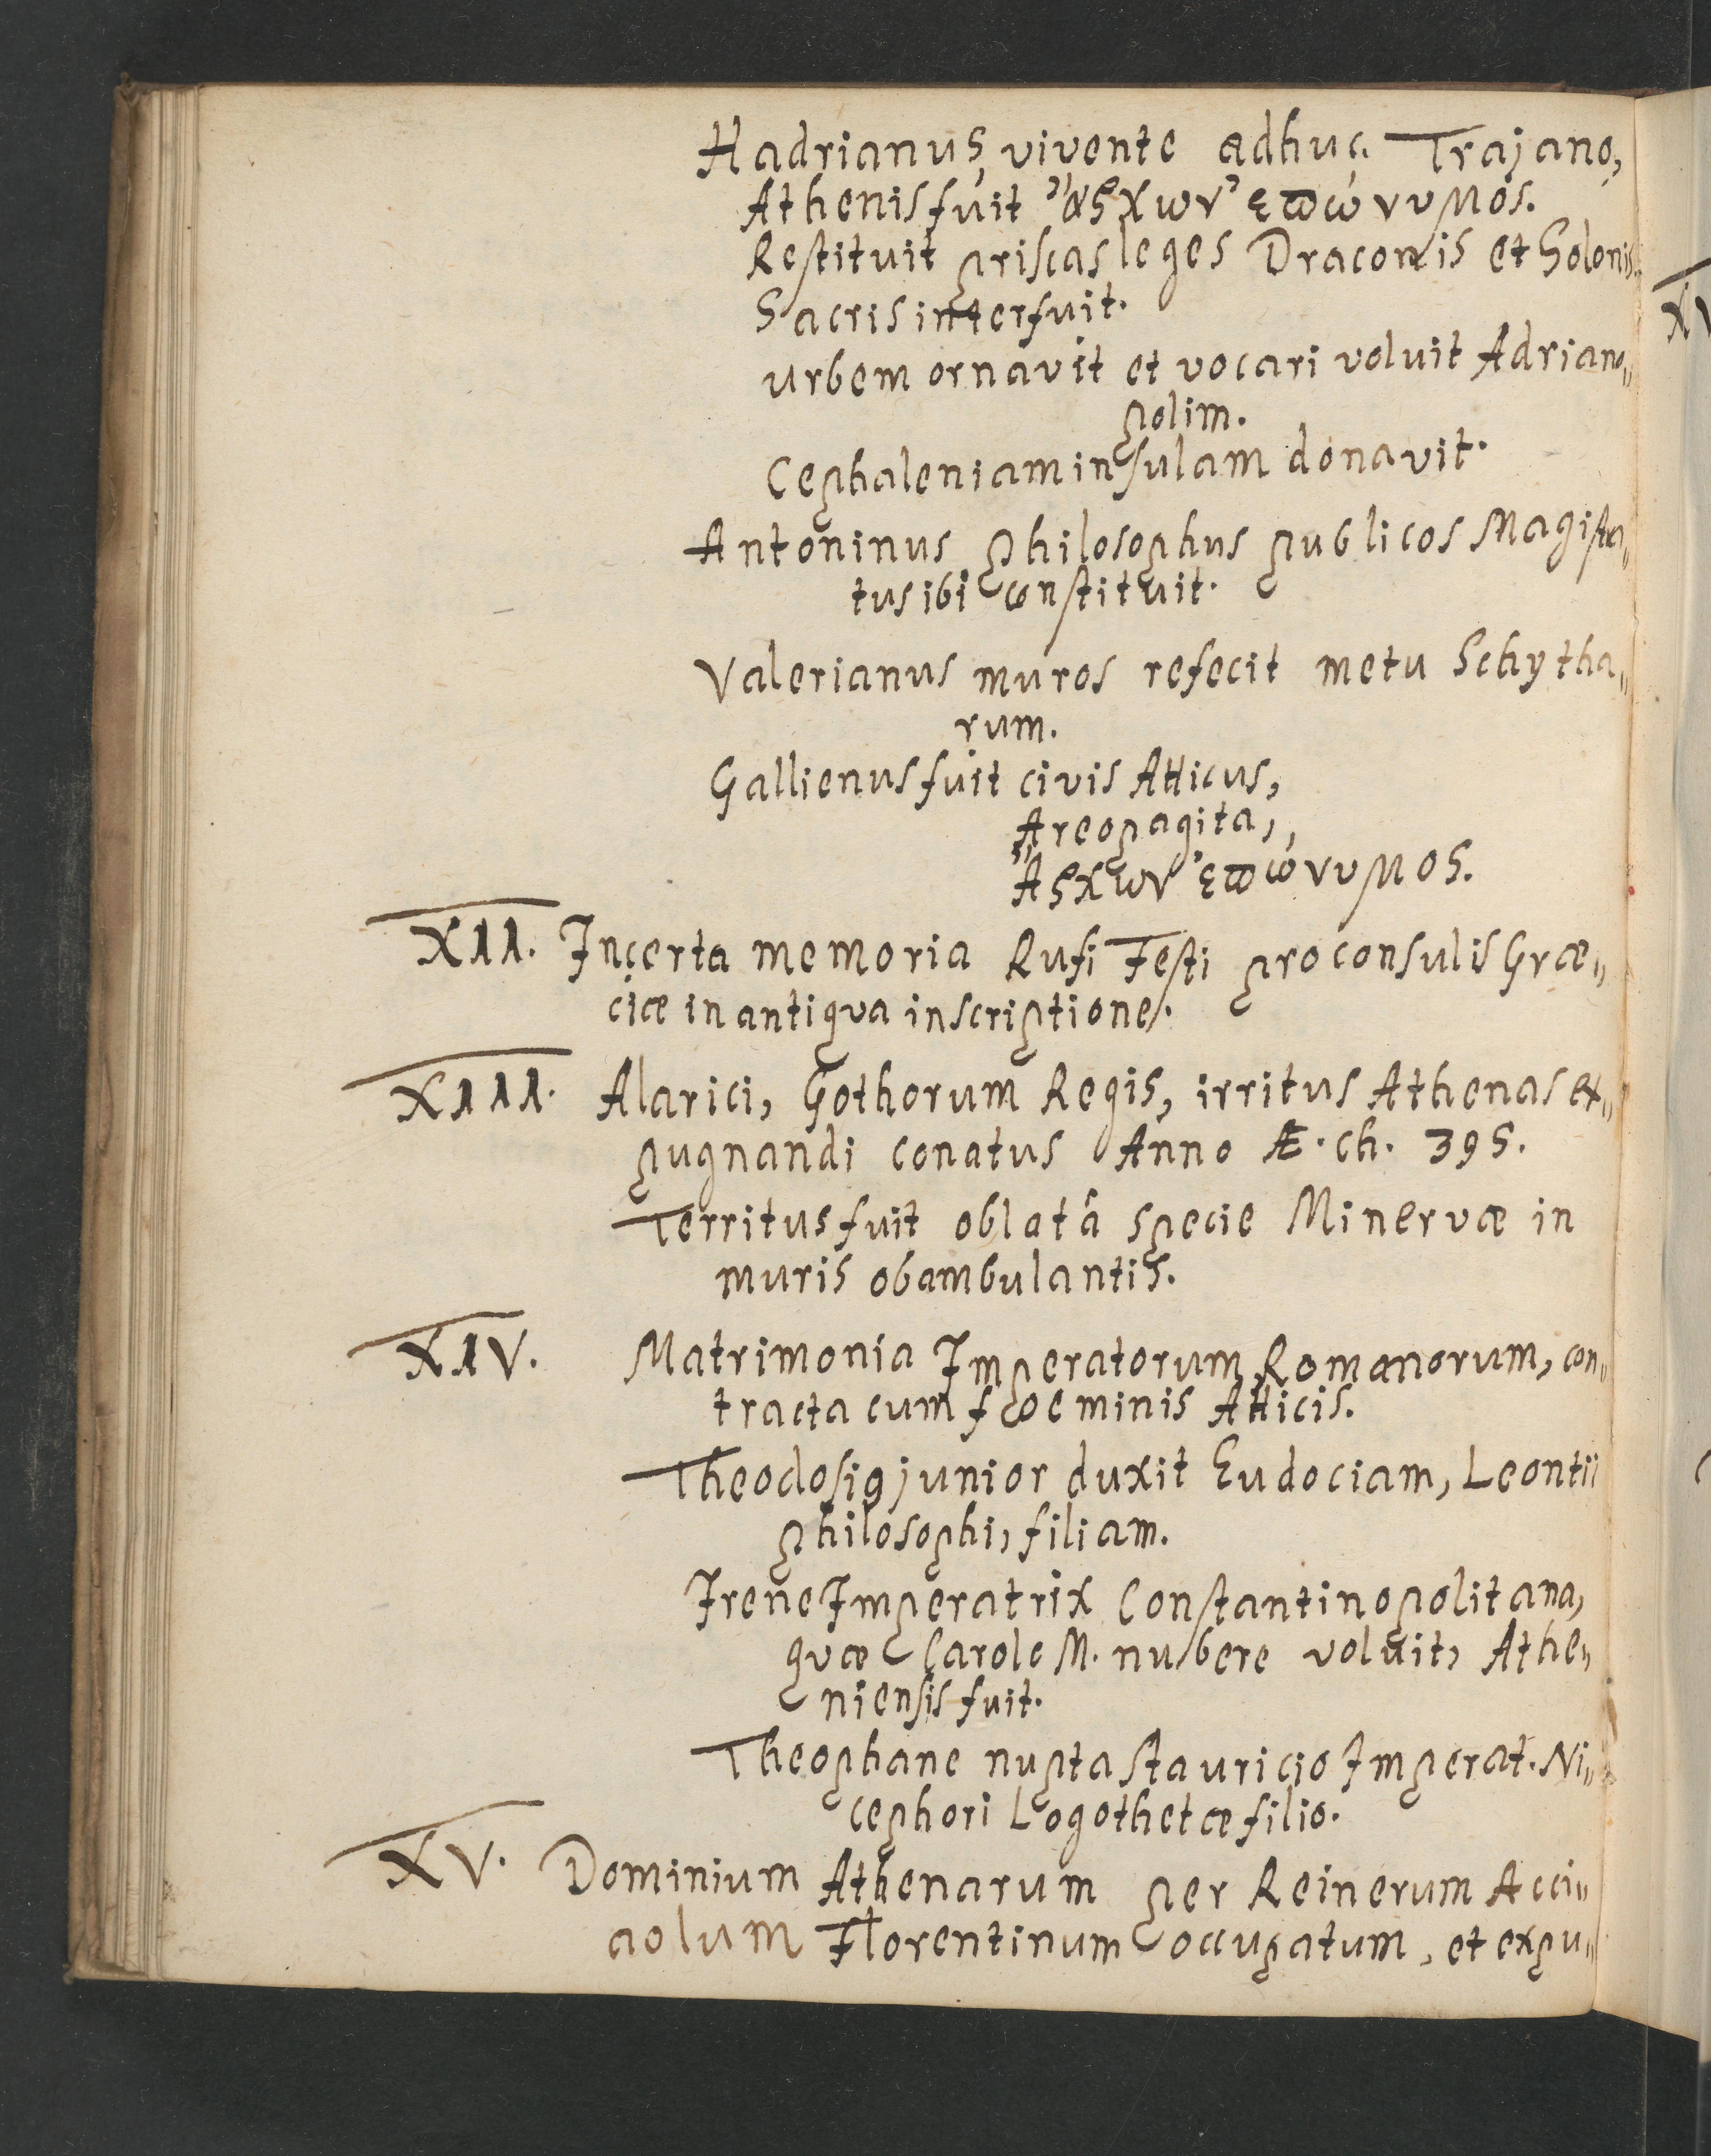 Hadrianus, vivente adhuc Trajano,
Athenis fuit ἄρχων ἐπώνυμος.
Restituit priscas leges Draconis et Solonis.
Sacris interfuit.
Urbem ornavit et vocari voluit Adriano„
polim.
Cephaleniam insulam donavit.
Antoninus Philosophus publicos Magistra„
tus ibi constituit.
Valerianus muros refecit metu Schytha„
rum.
Gallienus fuit civis Atticus,
Areopagita,
Ἄρχων ἐπώνυμος.
XII. Incerta memoria Rufi Festi proconsulis Græ„
ciæ in antiqva inscriptione.
XIII. Alarici, Gothorum Regis, irritus Athenas ex„
pugnandi conatus Anno Æ. Ch. 395.
Territus fuit oblatâ specie Minervæ in
muris obambulantis.
XIV. Matrimonia Imperatorum Romanorum, con„
tracta cum foeminis Atticis.
Theodosiꝰ junior duxit Eudociam, Leontii
Philosophi, filiam.
Irene Imperatrix Constantinopolitana,
qvæ Carolo M. nubere voluit, Athe„
niensis fuit.
Theophane nupta Stauricio Imperat. Ni„
cephori Logothetæ filio.
XV. Dominium Athenarum per Reinerum Acci„
aolum Florentinum occupatum, et expu„